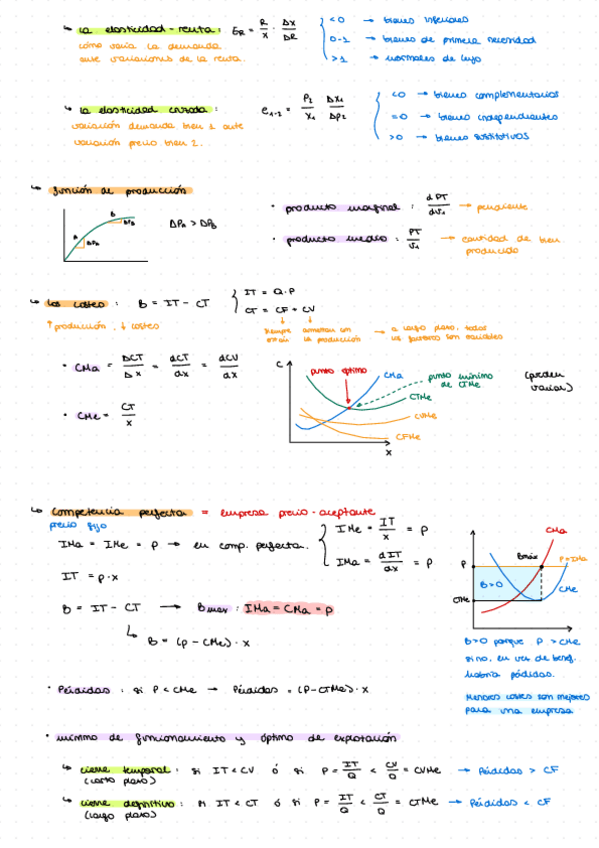 ↳ la elasticidad-renta: ER = R/x · Δx/ΔR { <0 → bienes inferiores
cómo varía la demanda 0-1 → bienes de primera necesidad
ante variaciones de la renta. >1 → normales de lujo
↳ la elasticidad cruzada: e1-2 = P2/x1 Δx1/Δp2 { <0 → bienes complementarios
variación demanda bien 1 ante =0 → bienes independientes
variación precio bien 2. >0 → bienes sustitutivos
↳ función de producción
A ΔPA B ΔPB ΔPA > ΔPB
• producto marginal: dPT/dv1 → pendiente
• producto medio: PT/v1 → cantidad de bien
producido
↳ los costes: B = IT - CT { IT = Q·P
CT = CF + CV
↑ producción, ↓ costes
siempre aumentan con → a largo plazo, todos
la producción los factores son variables
• CMa = ΔCT/Δx = dCT/dx = dCV/dx
• CMe = CT/x
C punto óptimo CMa punto mínimo
de CTMe (pueden
variar)
CTMe
CVMe
CFMe
x
↳ competencia perfecta = empresa precio-aceptante
precio fijo
IMa = IMe = P → en comp. perfecta. { IMe = IT/x = P
IMa = dIT/dx = P
IT = p·x
B = IT - CT → Bmax: IMa = CMa = P
↳ B = (P - CMe)·x
CMa
Bmáx
P P=IMa
B>0 CMe
CTMe
B>0 porque P > CMe
si no, en vez de benef.
habría pérdidas.
Menores costes son mejores
para una empresa
• Pérdidas: si P < CMe → Pérdidas = (P-CTMe)·x
• mínimo de funcionamiento y óptimo de explotación
↳ cierre temporal: si IT < CV ó si P = IT/Q < CV/Q = CVMe → Pérdidas > CF
(corto plazo)
↳ cierre definitivo: si IT < CT ó si P = IT/Q < CT/Q = CTMe → Pérdidas < CF
(largo plazo)